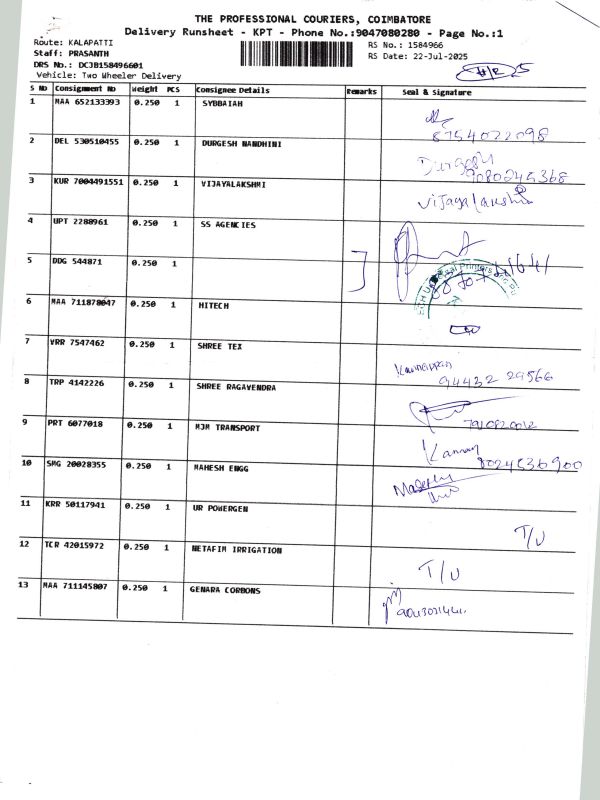 THE PROFESSIONAL COURIERS, COIMBATORE
Delivery Runsheet - KPT - Phone No.:9047080280 - Page No.:1
Route: KALAPATTI RS No.: 1584966
Staff: PRASANTH RS Date: 22-Jul-2025
DRS No.: DCJB158496601
Vehicle: Two Wheeler Delivery
S No Consignment No Weight PCS Consignee Details Remarks Seal & Signature
1 MAA 652133393 0.250 1 SYBBAIAH
8754022098
2 DEL 530510455 0.250 1 DURGESH NANDHINI
Durgesh
9080245368
3 KUR 7004491551 0.250 1 VIJAYALAKSHMI
Vijayalakshmi
4 UPT 2288961 0.250 1 SS AGENCIES
5 DDG 544871 0.250 1
6 MAA 711878047 0.250 1 HITECH
7 VRR 7547462 0.250 1 SHREE TEX
Kannappan
94432 29566
8 TRP 4142226 0.250 1 SHREE RAGAVENDRA
9 PRT 6077018 0.250 1 MJM TRANSPORT
Kannan
8024536900
10 SMG 20028355 0.250 1 MAHESH ENGG
11 KRR 50117941 0.250 1 UR POWERGEN
T/U
12 TCR 42015972 0.250 1 NETAFIM IRRIGATION
T/U
13 MAA 711145807 0.250 1 GENARA CORBONS